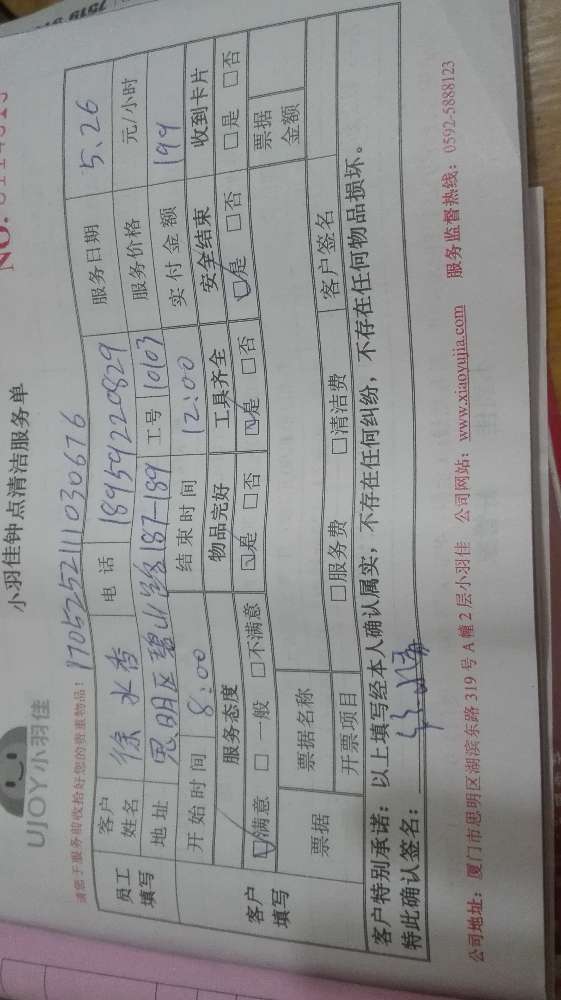 UJOY小羽佳
小羽佳钟点清洁服务单
NO.
请您于服务前收拾好您的贵重物品!
1705252111030676
员工填写 客户姓名 徐水香 电话 18959220829 服务日期 5.26
地址 思明区碧山路187-189 工号 1003 服务价格 元/小时
开始时间 8:00 结束时间 12:00 实付金额 199
客户填写 服务态度 物品完好 工具齐全 安全结束 收到卡片
☑满意 □一般 □不满意 ☑是 □否 ☑是 □否 ☑是 □否 □是 □否
票据 票据名称 票据金额
开票项目 □服务费 □清洁费 客户签名
客户特别承诺:以上填写经本人确认属实,不存在任何纠纷,不存在任何物品损坏。
特此确认签名:
公司地址:厦门市思明区湖滨东路319号A幢2层小羽佳 公司网站:www.xiaoyujia.com 服务监督热线:0592-5888123